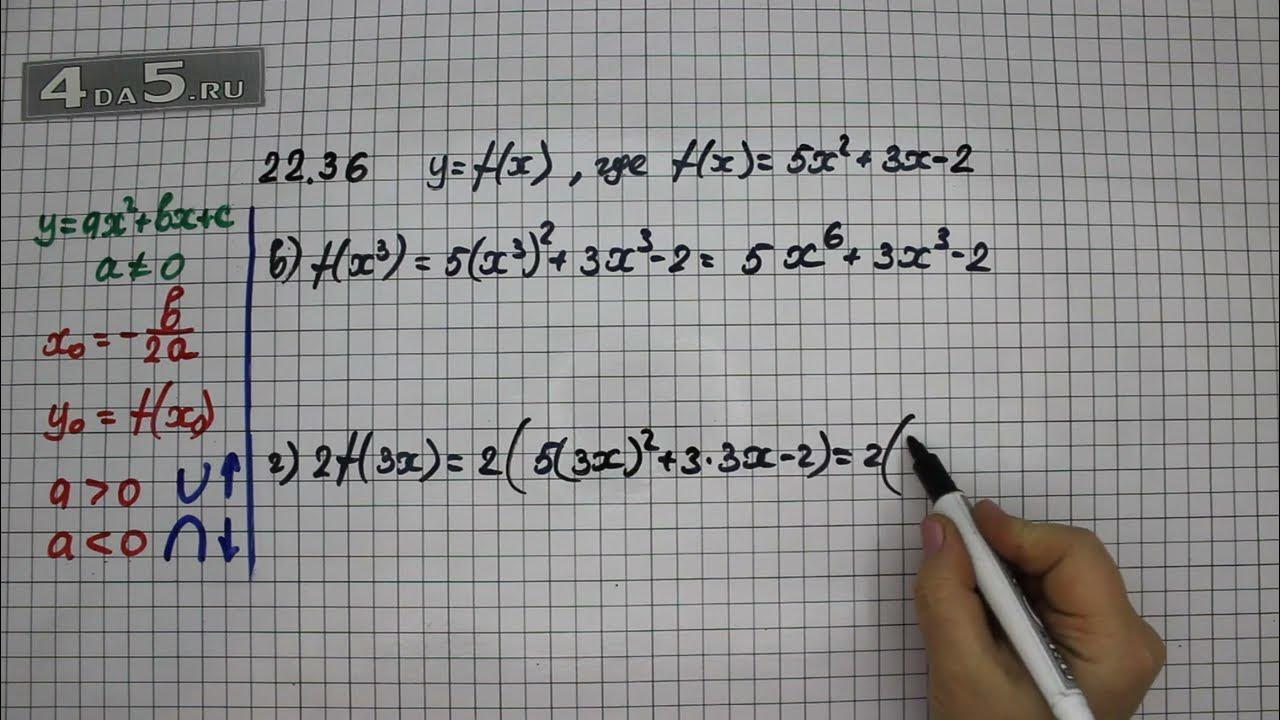 4DA5.RU
22.36 y=f(x), где f(x)=5x²+3x-2
y=ax²+bx+c
a≠0
x₀=-b/2a
y₀=f(x₀)
a>0 ∪↑
a<0 ∩↓
в) f(x³)=5(x³)²+3x³-2=5x⁶+3x³-2
г) 2f(3x)=2(5(3x)²+3·3x-2)=2(